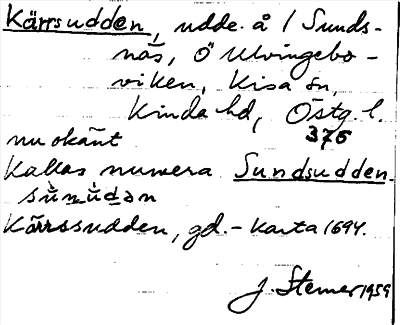 Kärrsudden, udde å / Sunds-
näs, Ö Ulvingebo-
viken, Kisa sn,
Kinda hd, Östg. l.
376
nu okänt
Kallas numera Sundsudden.
sùn̲ùd̲ən
Kärrssudden, gd. - Karta 1694.
J. Sterner 1959